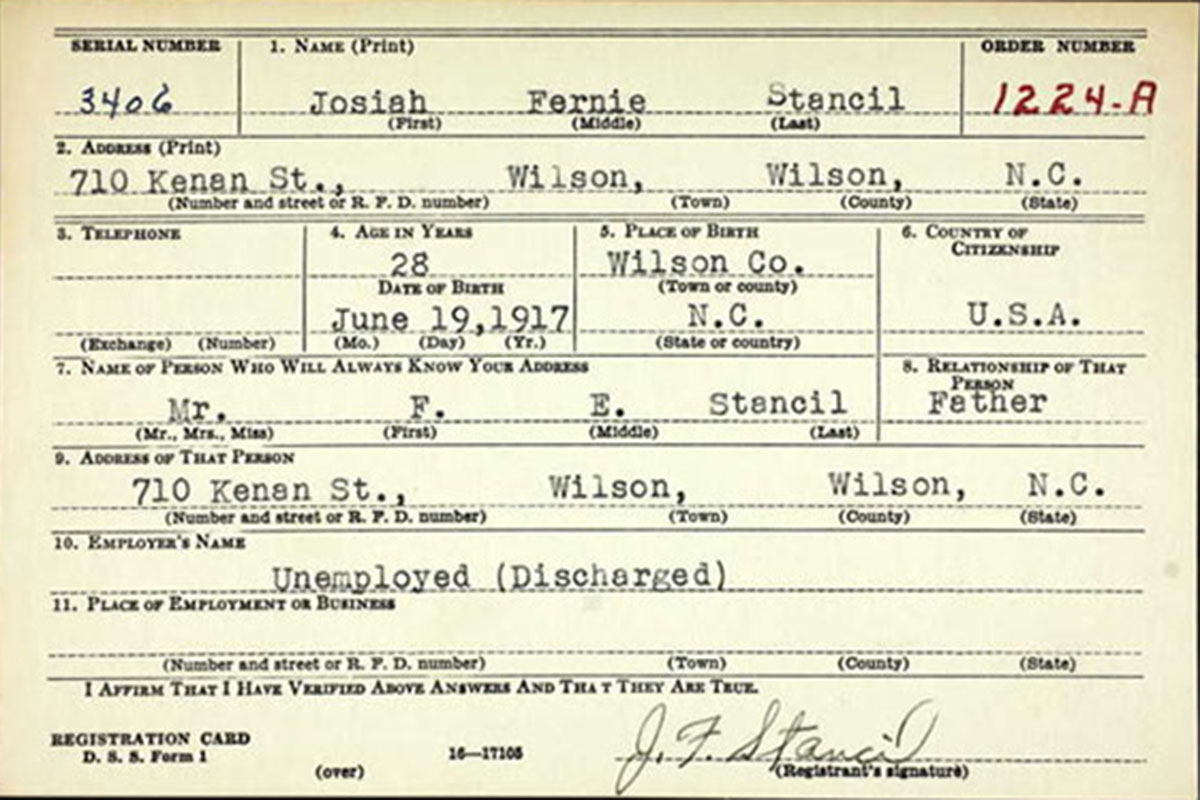 SERIAL NUMBER 1. NAME (Print) ORDER NUMBER
3406 Josiah Fernie Stancil 1224-A
(First) (Middle) (Last)
2. ADDRESS (Print)
710 Kenan St., Wilson, Wilson, N.C.
(Number and street or R. F. D. number) (Town) (County) (State)
3. TELEPHONE 4. AGE IN YEARS 5. PLACE OF BIRTH 6. COUNTRY OF
CITIZENSHIP
28 Wilson Co.
DATE OF BIRTH (Town or county)
June 19,1917 N.C. U.S.A.
(Exchange) (Number) (Mo.) (Day) (Yr.) (State or country)
7. NAME OF PERSON WHO WILL ALWAYS KNOW YOUR ADDRESS 8. RELATIONSHIP OF THAT
PERSON
Mr. F. E. Stancil Father
(Mr., Mrs., Miss) (First) (Middle) (Last)
9. ADDRESS OF THAT PERSON
710 Kenan St., Wilson, Wilson, N.C.
(Number and street or R. F. D. number) (Town) (County) (State)
10. EMPLOYER'S NAME
Unemployed (Discharged)
11. PLACE OF EMPLOYMENT OR BUSINESS
(Number and street or R. F. D. number) (Town) (County) (State)
I AFFIRM THAT I HAVE VERIFIED ABOVE ANSWERS AND THA T THEY ARE TRUE.
REGISTRATION CARD
D. S. S. Form 1 16—17105 J. F. Stancil
(over) (Registrant's signature)